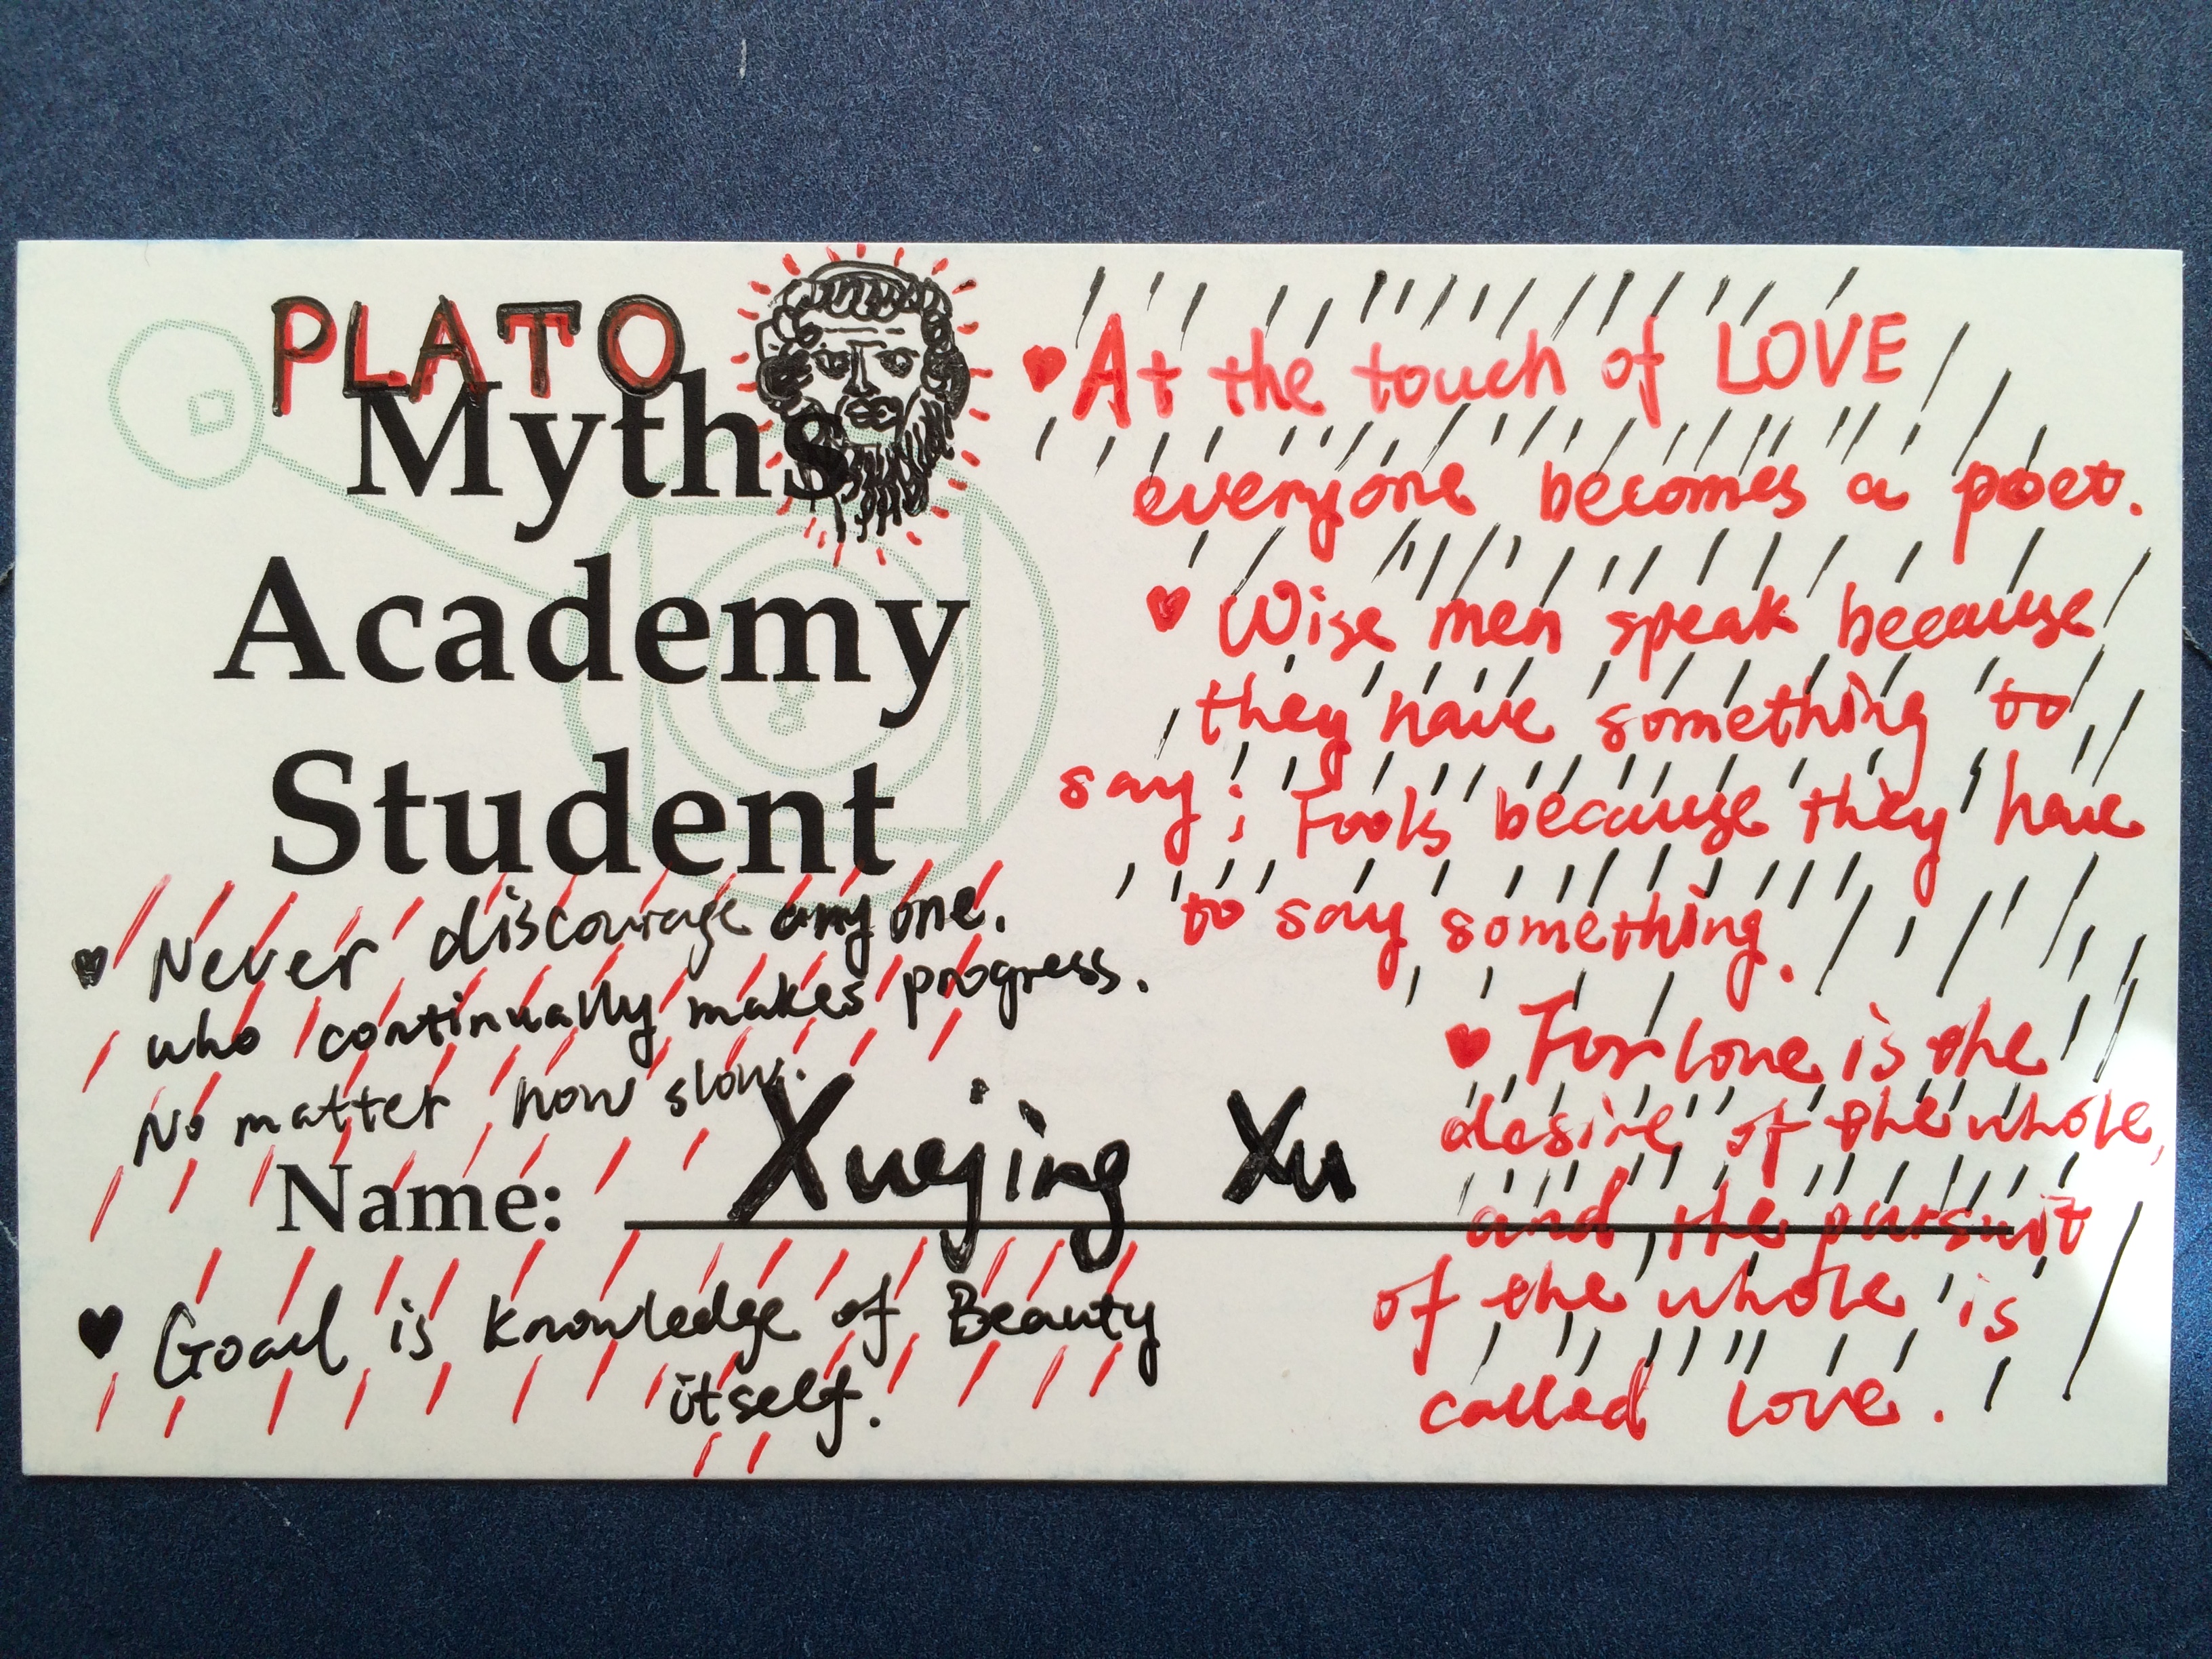 PLATO
Myths
Academy
Student
♥ Never discourage anyone.
who continually makes progress.
No matter how slow.
Name: Xuejing Xu
♥ Goal is knowledge of Beauty
itself.
♥ At the touch of LOVE
everyone becomes a poet.
♥ Wise men speak because
they have something to
say; Fools because they have
to say something.
♥ For love is the
desire of the whole,
and the pursuit
of the whole is
called love.